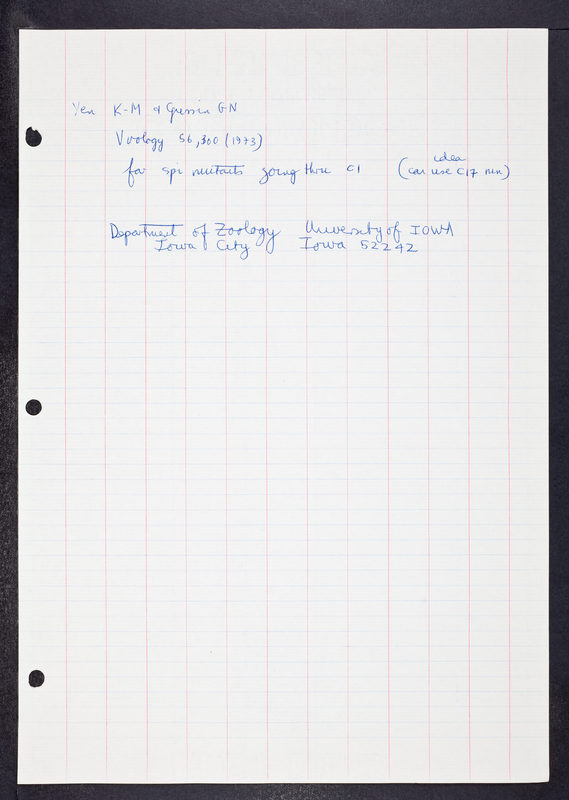 Yen K-M & Gussin GN
Virology 56, 300 (1973)
idea
for spi mutants going thru c1 (can use C17 nin)
Department of Zoology University of IOWA
Iowa City Iowa 52242